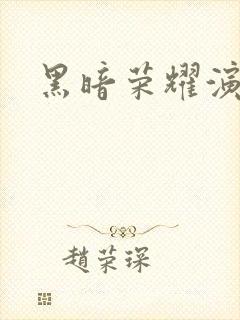 黑暗荣耀演
趙荣琛